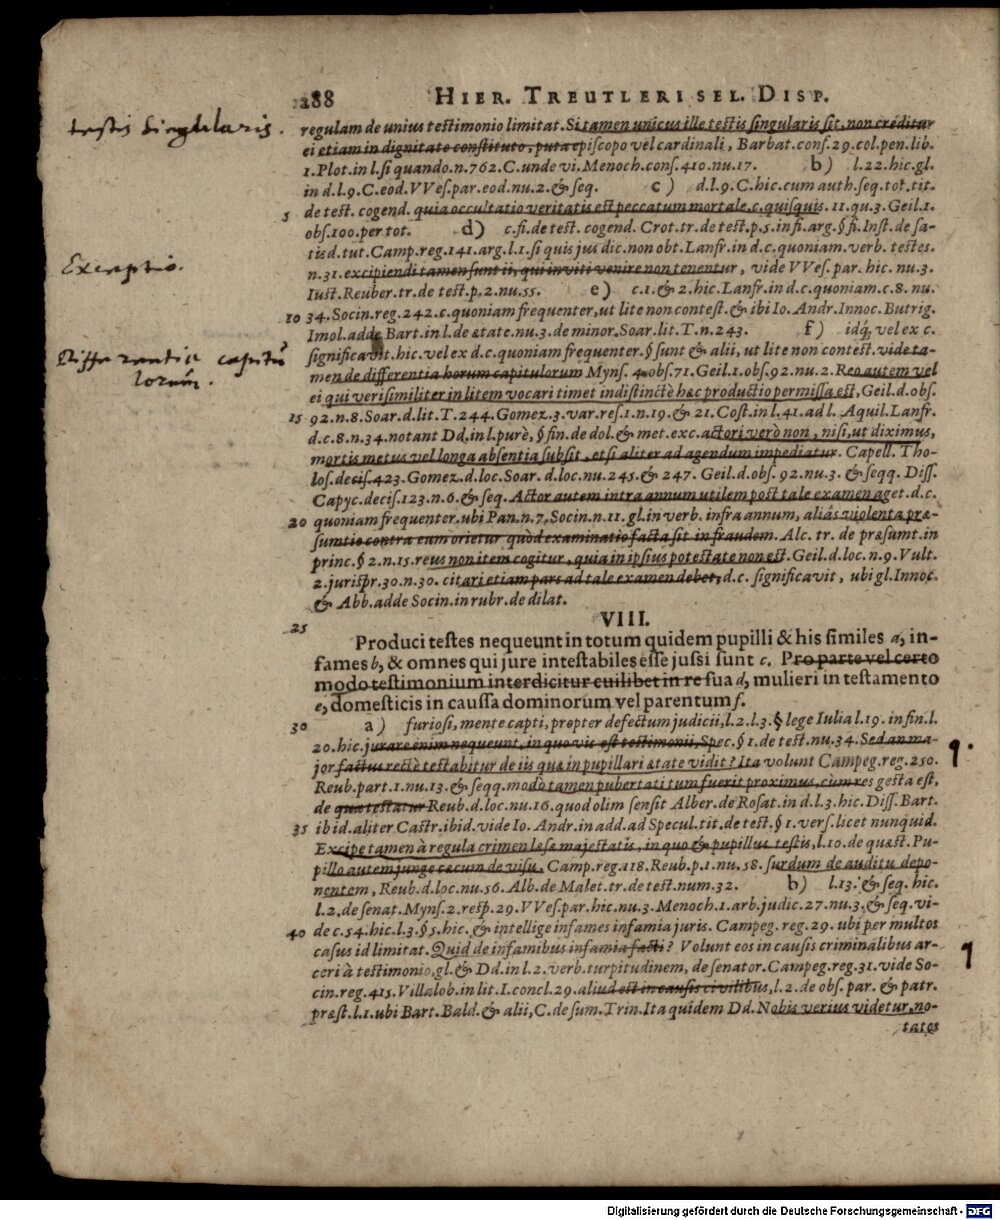 288 HIER. TREUTLERI SEL. DISP.
testis singularis.
regulam de unius testimonio limitat. Si tamen unicus ille testis singularis sit, non creditur
ei etiam in dignitate constituto, puta episcopo vel cardinali, Barbat. cons. 29. col. pen. lib.
1. Plot. in l. si quando. n. 762. C. unde vi. Menoch. cons. 410. nu. 17. b) l. 22. hic. gl.
in d. l. 9. C. eod. VVes. par. eod. nu. 2. & seq. c) d. l. 9. C. hic. cum auth. seq. tot. tit.
5 de test. cogend. quia occultatio veritatis est peccatum mortale. c. quisquis. 11. qu. 3. Geil. 1.
obs. 100. per tot. d) c. fi. de test. cogend. Crot. tr. de test. p. 5. insi. arg. § fi. Inst. de sa-
tisd. tut. Camp. reg. 141. arg. l. 1. si quis jus dic. non obt. Lanfr. in d. c. quoniam. verb. testes.
Exceptio.
n. 31. excipiendi tamen sunt ii, qui inviti venire non tenentur, vide VVes. par. hic. nu. 3.
Iust. Reuber. tr. de test. p. 2. nu. 55. e) c. 1. & 2. hic. Lanfr. in d. c. quoniam. c. 8. nu.
10 34. Socin. reg. 242. c. quoniam frequenter, ut lite non contest. & ibi Io. Andr. Innoc. Butrig.
Imol. adde Bart. in l. de ætate. nu. 3. de minor. Soar. lit. T. n. 243. f) idq, vel ex c.
Differentia capitu
lorum.
significavit. hic. vel ex d. c. quoniam frequenter. § sunt & alii, ut lite non contest. vide ta-
men de differentia horum capitulorum Myns. 4. obs. 71. Geil. 1. obs. 92. nu. 2. Reo autem vel
ei qui verisimiliter in litem vocari timet indistinctè hæc productio permissa est, Geil. d. obs.
15 92. n. 8. Soar. d. lit. T. 244. Gomez. 3. var. res. 1. n. 19. & 21. Cost. in l. 41. ad l. Aquil. Lanfr.
d. c. 8. n. 34. notant Dd. in l. purè, § fin. de dol. & met. exc. actori verò non, nisi, ut diximus,
mortis metus vel longa absentia subsit, etsi aliter ad agendum impediatur. Capell. Tho-
los. decis. 423. Gomez. d. loc. Soar. d. loc. nu. 245. & 247. Geil. d. obs. 92. nu. 3. & seqq. Diss.
Capyc. decis. 123. n. 6. & seq. Actor autem intra annum utilem post tale examen aget. d. c.
20 quoniam frequenter. ubi Pan. n. 7. Socin. n. 11. gl. in verb. infra annum, aliâs violenta præ-
sumtio contra eum orietur quòd examinatio facta sit in fraudem. Alc. tr. de præsumt. in
princ. § 2. n. 15. reus non item cogitur, quia in ipsius potestate non est. Geil. d. loc. n. 9. Vult.
2. jurispr. 30. n. 30. citari etiam pars ad tale examen debet, d. c. significavit, ubi gl. Innoc.
& Abb. adde Socin. in rubr. de dilat.
VIII.
25 Produci testes nequeunt in totum quidem pupilli & his similes a, in-
fames b, & omnes qui jure intestabiles esse jussi sunt c. Pro parte vel certo
modo testimonium interdicitur cuilibet in re sua d, mulieri in testamento
e, domesticis in caussa dominorum vel parentum f.
30 a) furiosi, mente capti, propter defectum judicii, l. 2. l. 3. § lege Iulia l. 19. in fin. l.
20. hic. jurare enim nequeunt, in quo vis est testimonii, Spec. § 1. de test. nu. 34. Sed an ma-
jor factus rectè testabitur de iis quæ in pupillari ætate vidit? Ita volunt Campeg. reg. 250.
Reub. part. 1. nu. 13. & seqq. modò tamen pubertati tum fuerit proximus, cum res gesta est,
de qua testatur Reub. d. loc. nu. 16. quod olim sensit Alber. de Rosat. in d. l. 3. hic. Diss. Bart.
35 ibid. aliter Castr. ibid. vide Io. Andr. in add. ad Specul. tit. de test. § 1. vers. licet nunquid.
Excipe tamen à regula crimen læsæ majestatis, in quo & pupillus testis, l. 10. de quæst. Pu-
pillo autem junge cæcum de visu, Camp. reg. 118. Reub. p. 1. nu. 58. surdum de auditu depo-
nentem, Reub. d. loc. nu. 56. Alb. de Malet. tr. de test. num. 32. b) l. 13. & seq. hic.
l. 2. de senat. Myns. 2. resp. 29. VVes. par. hic. nu. 3. Menoch. 1. arb. judic. 27. nu. 3. & seq. vi-
40 de c. 54. hic. l. 3. § 5. hic. & intellige infames infamia juris. Campeg. reg. 29. ubi per multos
casus id limitat. Quid de infamibus infamia facti? Volunt eos in causis criminalibus ar-
ceri à testimonio, gl. & Dd. in l. 2. verb. turpitudinem, de senator. Campeg. reg. 31. vide So-
cin. reg. 415. Villalob. in lit. I. concl. 29. aliud est in caussis civilibus, l. 2. de obs. par. & patr.
præst. l. 1. ubi Bart. Bald. & alii, C. de sum. Trin. Ita quidem Dd. Nobis verius videtur, no-
tatos
Digitalisierung gefördert durch die Deutsche Forschungsgemeinschaft - DFG